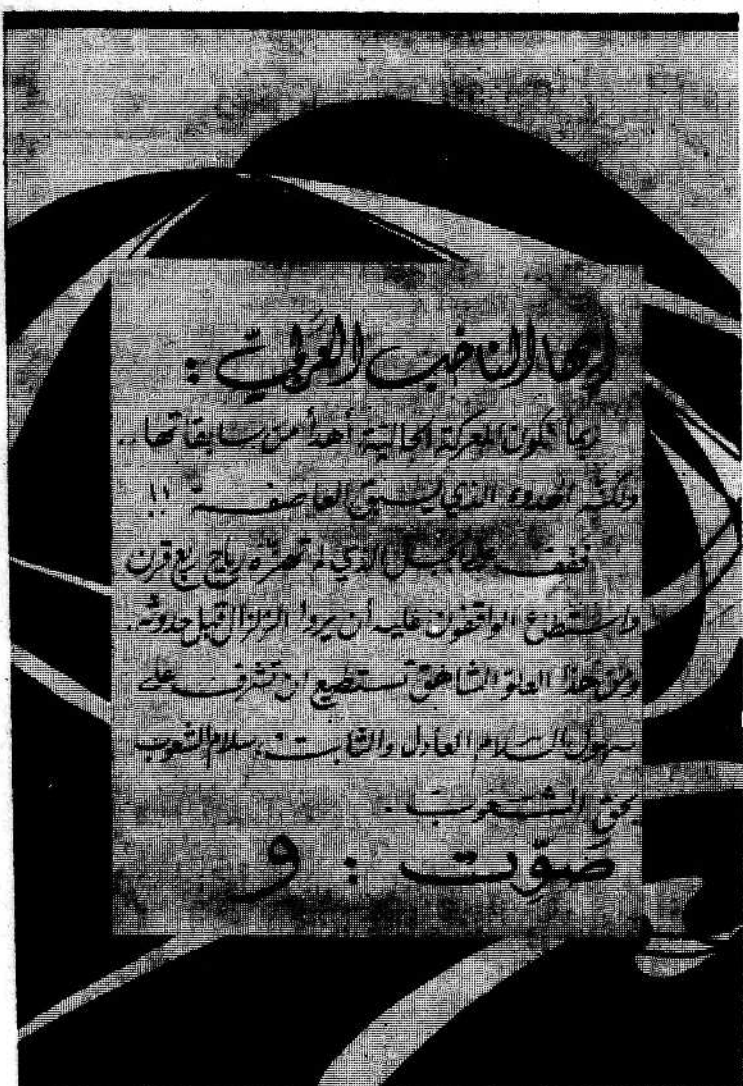 أيها الناخب العربي :
ربما تكون المعركة الحالية أهدأ من سابقاتها ..
ولكنه الهدوء الذي يسبق العاصفة !!
فقف على الجبل الذي لم تهزّه رياح ربع قرن
واستطاع الواقفون عليه أن يروا الزلزال قبل حدوثه.
ومن هذا العلو الشاهق تستطيع ان تشرف على
سهول السلام العادل والثابت، سلام الشعوب
بحق الشعوب .
صَوِّت : و